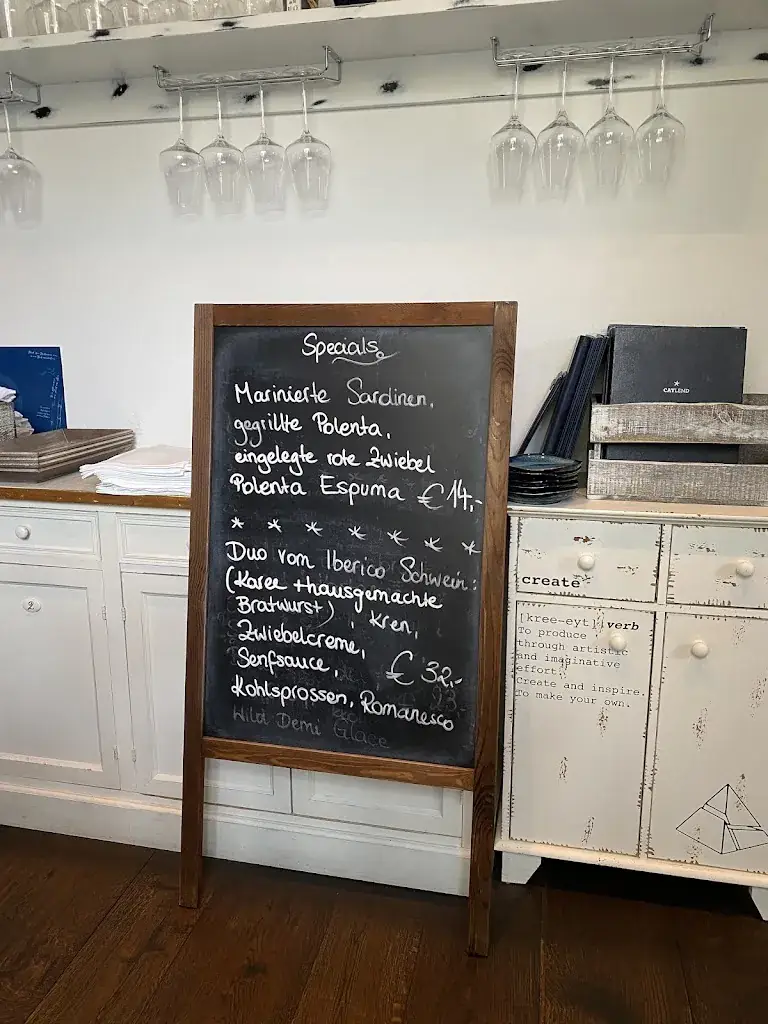 Specials
Marinierte Sardinen,
gegrillte Polenta,
eingelegte rote Zwiebel
Polenta Espuma € 14,-
* * * * * * *
Duo vom Iberico Schwein:
(Karee + hausgemachte
Bratwurst), Kren,
Zwiebelcreme,
Senfsauce, € 32,-
Kohlsprossen, Romanesco
Wild Demi Glace
CAYLEND
create
[kree-eyt] verb
To produce
through artistic
and imaginative
effort.
Create and inspire.
To make your own.
2